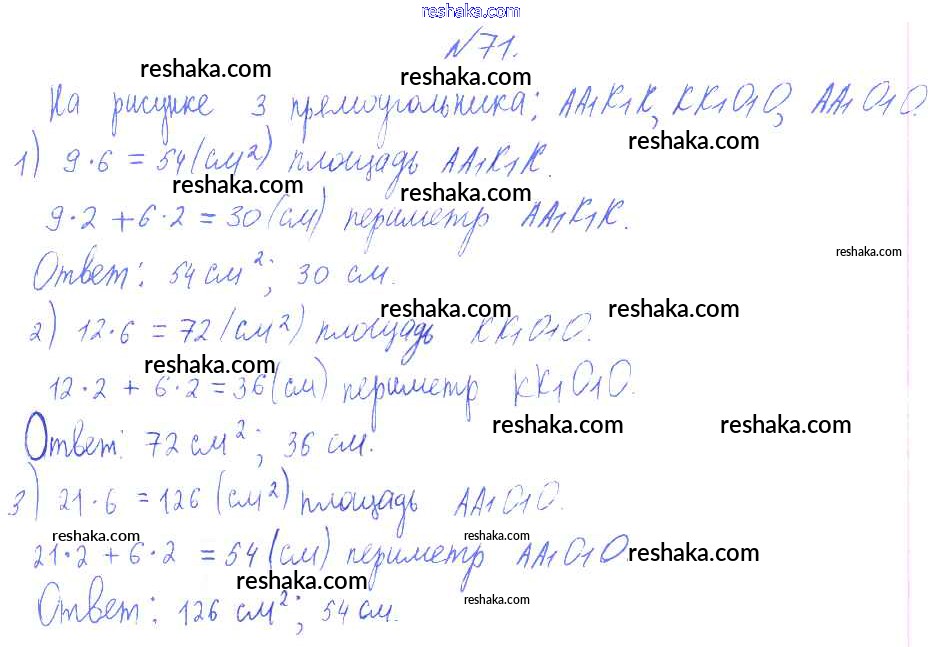 reshaka.com
№71.
reshaka.com reshaka.com
На рисунке 3 прямоугольника: AA₁K₁K, KK₁O₁O, AA₁O₁O.
reshaka.com
1) 9·6 = 54 (см²) площадь AA₁K₁K.
reshaka.com reshaka.com
9·2 + 6·2 = 30 (см) периметр AA₁K₁K.
reshaka.com
Ответ: 54 см²; 30 см.
reshaka.com reshaka.com
2) 12·6 = 72 (см²) площадь KK₁O₁O.
reshaka.com
12·2 + 6·2 = 36 (см) периметр KK₁O₁O.
reshaka.com reshaka.com
Ответ: 72 см²; 36 см.
3) 21·6 = 126 (см²) площадь AA₁O₁O.
reshaka.com reshaka.com
21·2 + 6·2 = 54 (см) периметр AA₁O₁O.
reshaka.com
reshaka.com reshaka.com
Ответ: 126 см²; 54 см.